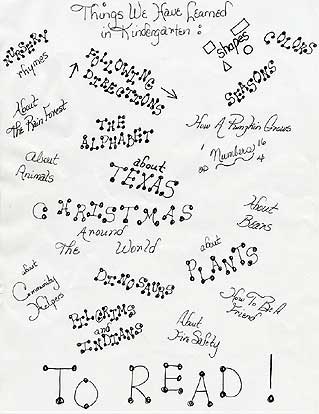 Things We Have Learned
in Kindergarten :
NURSERY
rhymes
FOLLOWING
DIRECTIONS
shapes
COLORS
SEASONS
About
the Rain Forest
THE
ALPHABET
How A Pumpkin Grows
Numbers
1
16
20
4
About
Animals
about
TEXAS
CHRISTMAS
Around
The World
About
Bears
about
PLANTS
about
Community
Helpers
DINOSAURS
How To Be A
Friend
PILGRIMS
and
INDIANS
About
Fire Safety
TO READ!